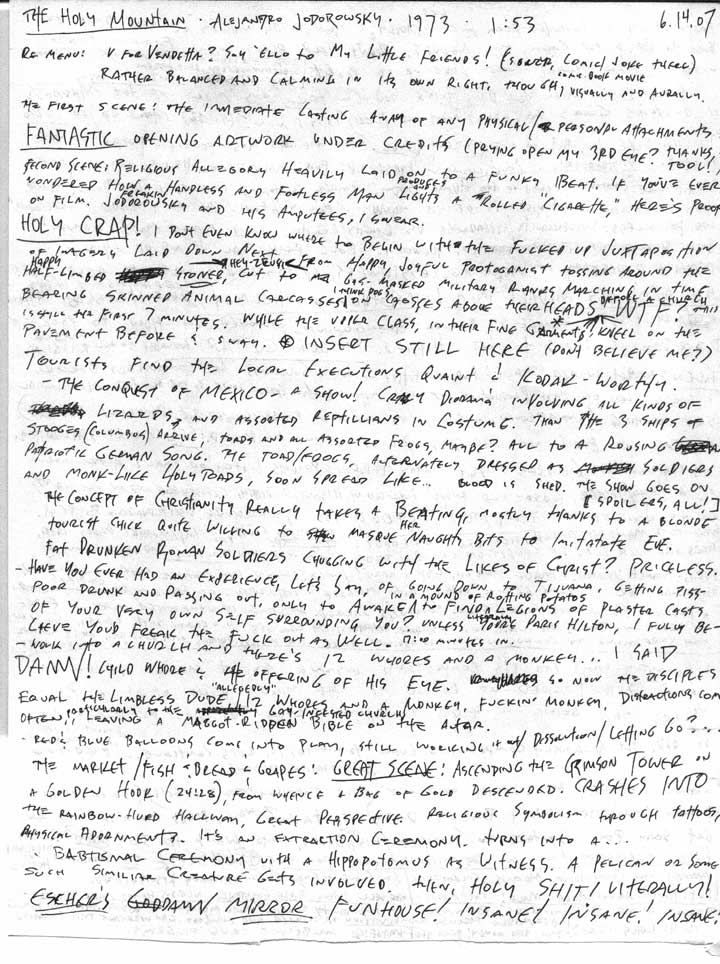 THE HOLY MOUNTAIN · ALEJANDRO JODOROWSKY · 1973 · 1:53 6.14.07
RE MENU: V FOR VENDETTA? SAY 'ELLO TO MY LITTLE FRIENDS! (COMIC JOKE THERE)
RATHER BALANCED AND CALMING IN ITS OWN RIGHT, THOUGH, VISUALLY AND AURALLY.
COMIC-BOOK MOVIE
THE FIRST SCENE: THE IMMEDIATE CASTING AWAY OF ANY PHYSICAL/PERSONAL ATTACHMENTS.
FANTASTIC OPENING ARTWORK UNDER CREDITS (PRYING OPEN MY 3RD EYE? THANKS, TOOL!)
SECOND SCENE: RELIGIOUS ALLEGORY HEAVILY LAID ON TO A FUNKY BEAT. IF YOU'VE EVER
WONDERED HOW A FREAKIN' HANDLESS AND FOOTLESS MAN LIGHTS A ROLLED "CIGARETTE," HERE'S PROOF
ON FILM. JODOROWSKY AND HIS AMPUTEES, I SWEAR.
HOLY CRAP! I DON'T EVEN KNOW WHERE TO BEGIN WITH THE FUCKED UP JUXTAPOSITION
OF IMAGERY LAID DOWN NEXT. FROM HAPPY, JOYFUL PROTOGANIST TOSSING AROUND THE
HAPPY HALF-LIMBED STONER, CUT TO GAS-MASKED MILITARY RANKS MARCHING IN TIME
BEARING SKINNED ANIMAL CARCASSES ON CROSSES ABOVE THEIR HEADS BEFORE A CHURCH WTF? THIS
IS STILL THE FIRST 7 MINUTES. WHILE THE UPPER CLASS, IN THEIR FINE GARMENTS, KNEEL ON THE
PAVEMENT BEFORE & SWAY. * INSERT STILL HERE (DON'T BELIEVE ME?)
TOURISTS FIND THE LOCAL EXECUTIONS QUAINT & KODAK-WORTHY.
- THE CONQUEST OF MEXICO - A SHOW! CRAZY DIORAMA INVOLVING ALL KINDS OF
LIZARDS, AND ASSORTED REPTILLIANS IN COSTUME. THAN THE 3 SHIPS OF
STOOGES (COLUMBUS) ARRIVE, TOADS AND ALL ASSORTED FROGS, MAYBE? ALL TO A ROUSING
PATRIOTIC GERMAN SONG. THE TOAD/FROGS, ALTERNATELY DRESSED AS SOLDIERS
AND MONK-LIKE HOLY TOADS, SOON SPREAD LIKE... BLOOD IS SHED. THE SHOW GOES ON
[SPOILERS, ALL!]
THE CONCEPT OF CHRISTIANITY REALLY TAKES A BEATING, MOSTLY THANKS TO A BLONDE
TOURIST CHICK QUITE WILLING TO MASQUE HER NAUGHTY BITS TO IMITATE EVE.
FAT DRUNKEN ROMAN SOLDIERS CHUGGING WITH THE LIKES OF CHRIST? PRICELESS.
- HAVE YOU EVER HAD AN EXPERIENCE, LET'S SAY, OF GOING DOWN TO TIJUANA, GETTING PISS-
POOR DRUNK AND PASSING OUT, ONLY TO AWAKEN IN A MOUND OF ROTTING POTATOS TO FIND LEGIONS OF PLASTER CASTS
OF YOUR VERY OWN SELF SURROUNDING YOU? UNLESS YOU'RE PARIS HILTON, I FULLY BE-
LIEVE YOU'D FREAK THE FUCK OUT AS WELL. 17:00 MINUTES IN.
- WALK INTO A CHURCH AND THERE'S 12 WHORES AND A MONKEY... I SAID
DAMN! CHILD WHORE & THE OFFERING OF HIS EYE. SO NOW THE DISCIPLES
EQUAL THE LIMBLESS DUDE, 12 WHORES AND A MONKEY, FUCKIN' MONKEY. DISTRACTIONS COME
OFTEN, LEAVING A MAGGOT-RIDDEN BIBLE ON THE ALTAR.
- RED & BLUE BALLOONS COME INTO PLAY, STILL WORKING IT W/ DISSOLUTION/LETTING GO?...
THE MARKET/FISH & BREAD & GRAPES! GREAT SCENE: ASCENDING THE CRIMSON TOWER ON
A GOLDEN HOOK (24:28), FROM WHENCE A BAG OF GOLD DESCENDED. CRASHES INTO
THE RAINBOW-HUED HALLWAY, GREAT PERSPECTIVE. RELIGIOUS SYMBOLISM THROUGH TATTOOS,
PHYSICAL ADORNMENT? IT'S AN EXTRACTION CEREMONY. TURNS INTO A...
BABTISMAL CEREMONY WITH A HIPPOPOTOMUS AS WITNESS. A PELICAN OR SOME
SUCH SIMILIAR CREATURE GETS INVOLVED. THEN, HOLY SHIT! LITERALLY!
ESCHER'S GODDAMN MIRROR FUNHOUSE! INSANE! INSANE! INSANE!